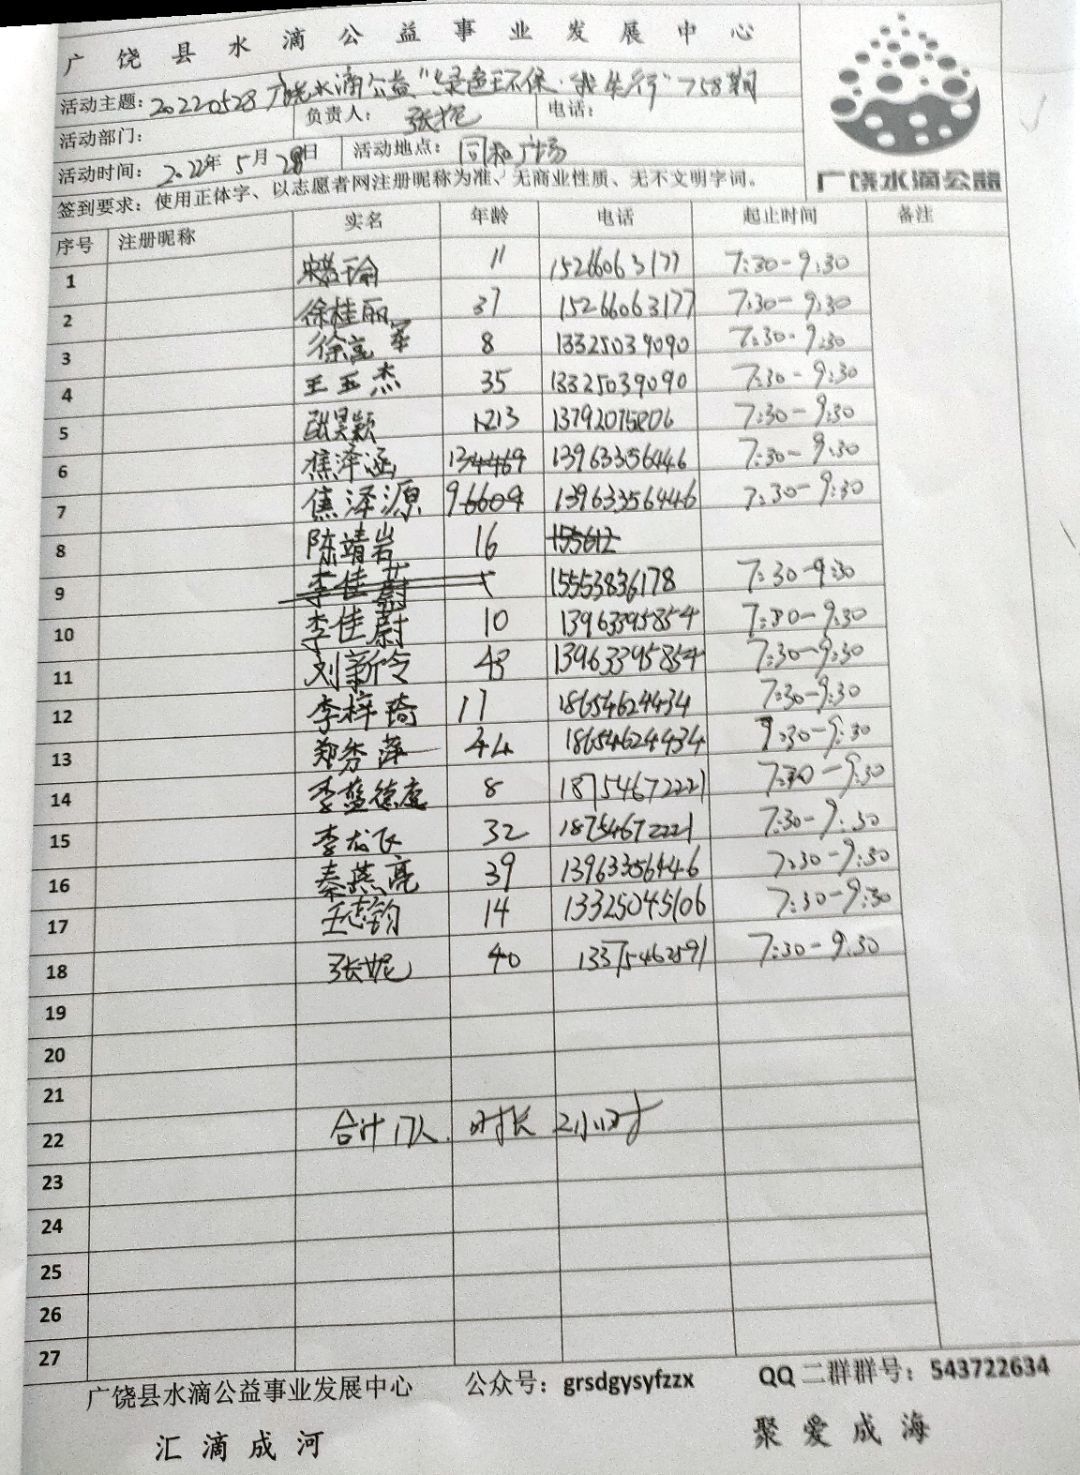 广饶县水滴公益事业发展中心
活动主题：20220528广饶水滴公益“绿色环保·我先行”758期
活动部门： 负责人：张妮 电话：
活动时间：2022年5月28日 活动地点：同和广场
签到要求：使用正体字、以志愿者网注册昵称为准、无商业性质、无不文明字词。
广饶水滴公益
序号 注册昵称 实名 年龄 电话 起止时间 备注
1 11 15266063177 7:30-9:30
2 徐桂丽 37 15266063177 7:30-9:30
3 8 13325039090 7:30-9:30
4 王玉杰 35 13325039090 7:30-9:30
5 13 13792075806 7:30-9:30
6 焦泽涵 13 13963356446 7:30-9:30
7 焦泽源 9 13963356446 7:30-9:30
8 陈靖岩 16 155612
9 李佳蔚 15553836178 7:30-9:30
10 李佳蔚 10 13963395854 7:30-9:30
11 刘新令 43 13963395854 7:30-9:30
12 李梓琦 17 18654624434 7:30-9:30
13 郑秀萍 44 18654624434 9:30-9:30
14 8 18754672221 7:30-9:30
15 李龙飞 32 18754672221 7:30-9:30
16 秦燕亮 39 13963356446 7:30-9:30
17 王志钧 14 13325045106 7:30-9:30
18 张妮 40 13375462591 7:30-9:30
19
20
21
22 合计17人. 时长 2小时
23
24
25
26
27
广饶县水滴公益事业发展中心 公众号：grsdgysyfzzx QQ二群群号：543722634
汇滴成河 聚爱成海